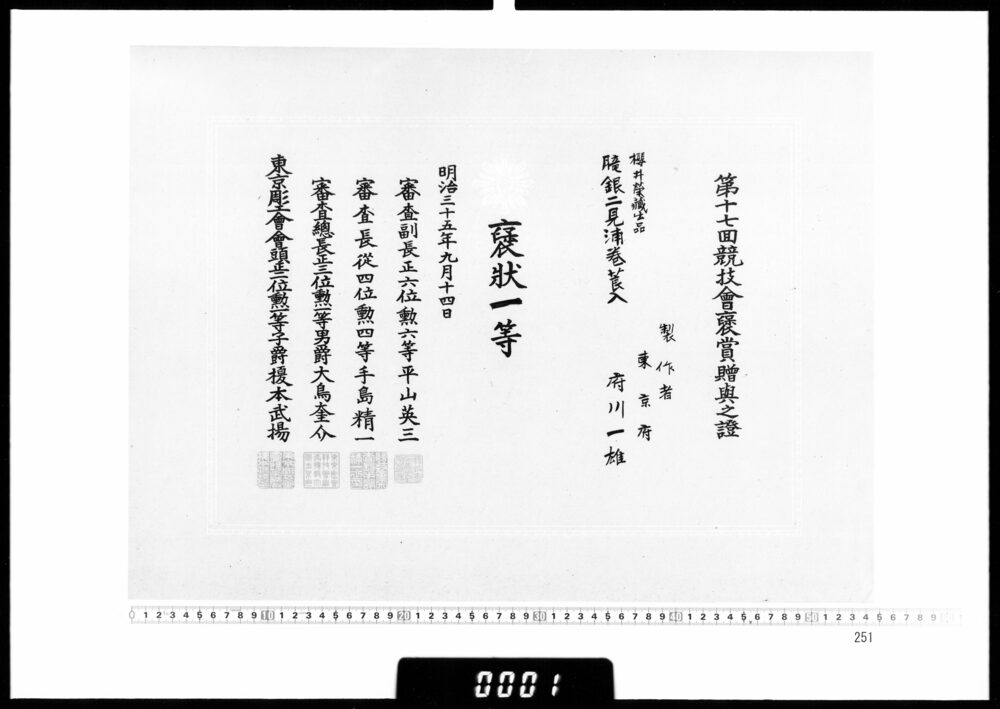 第十七回競技會褒賞贈與之證
製作者
東京府
府川一雄
櫻井榮藏出品
朧銀二見浦巻莨入
褒狀一等
明治三十五年九月十四日
審査副長正六位勲六等平山英三
審査長從四位勲四等手島精一
審査總長正三位勲一等男爵大鳥圭介
東京彫工會會頭正二位勲一等子爵榎本武揚
0 1 2 3 4 5 6 7 8 9 10 1 2 3 4 5 6 7 8 9 20 1 2 3 4 5 6 7 8 9 30 1 2 3 4 5 6 7 8 9 40 1 2 3 4 5 6 7 8 9 50 1 2 3 4 5 6 7 8 9
251
0001